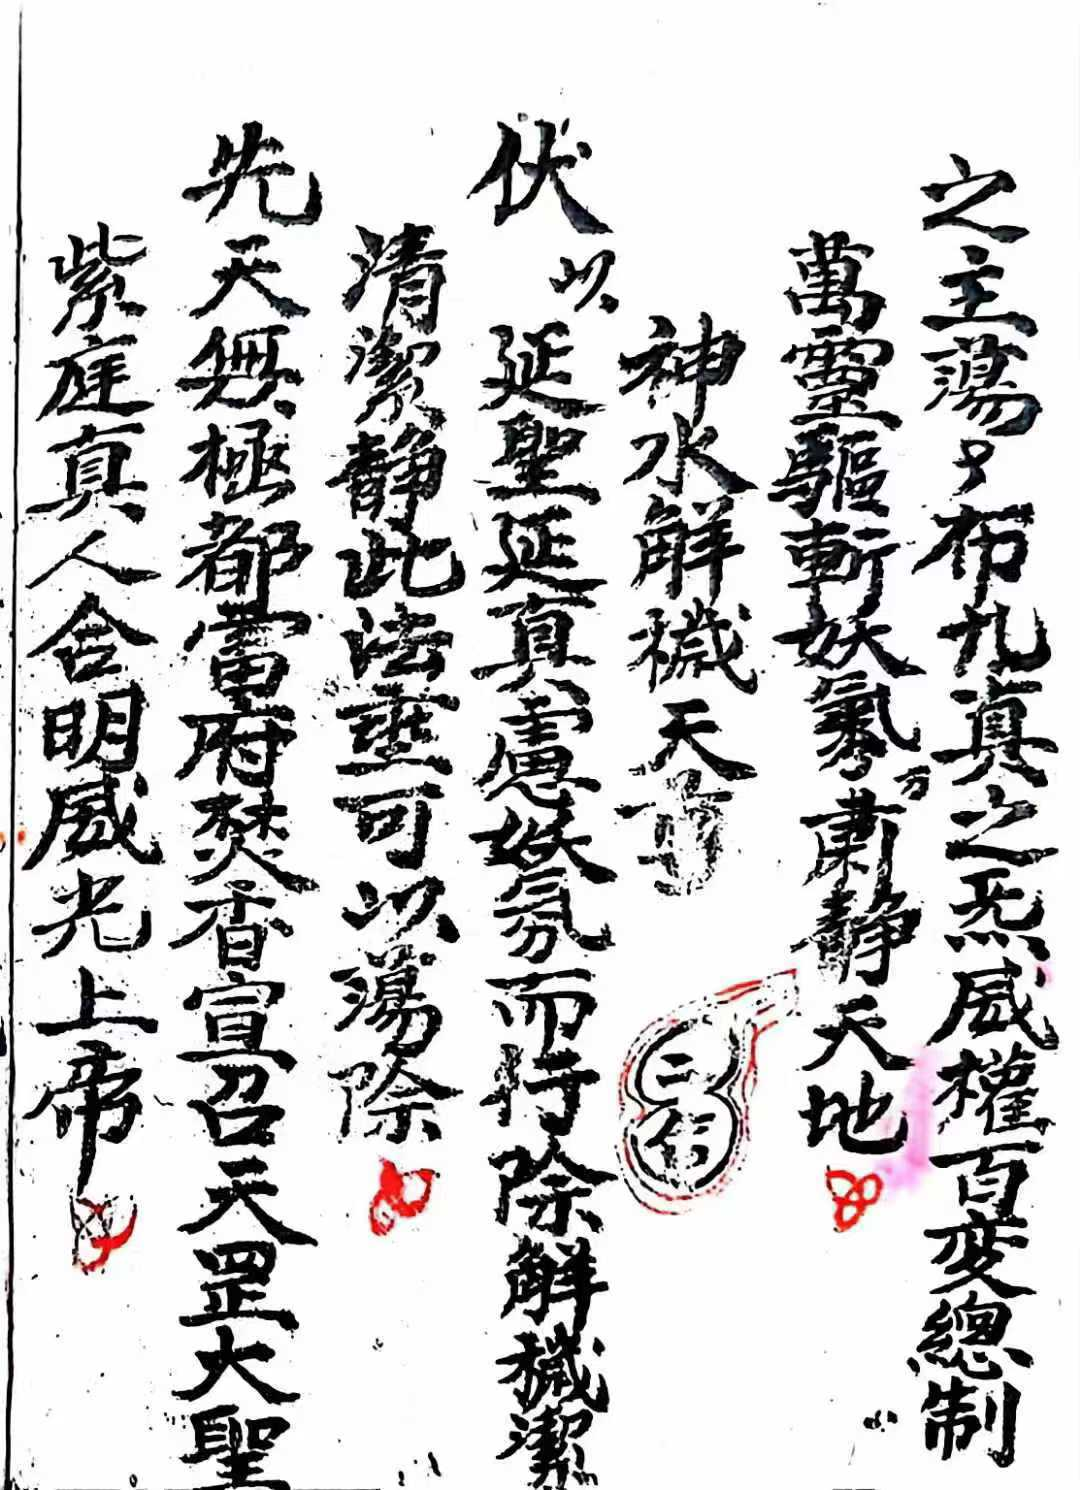 之主蕩々布九真之炁威權百变總制
萬靈驅斬妖氛肅静天地
神水解穢天尊
二仁
伏以
延聖延真慮妖氛而行除解穢潔
清潔静此法垂可以蕩除
先天無極都雷府焚香宣召天罡大聖
紫庭真人合明威光上帝